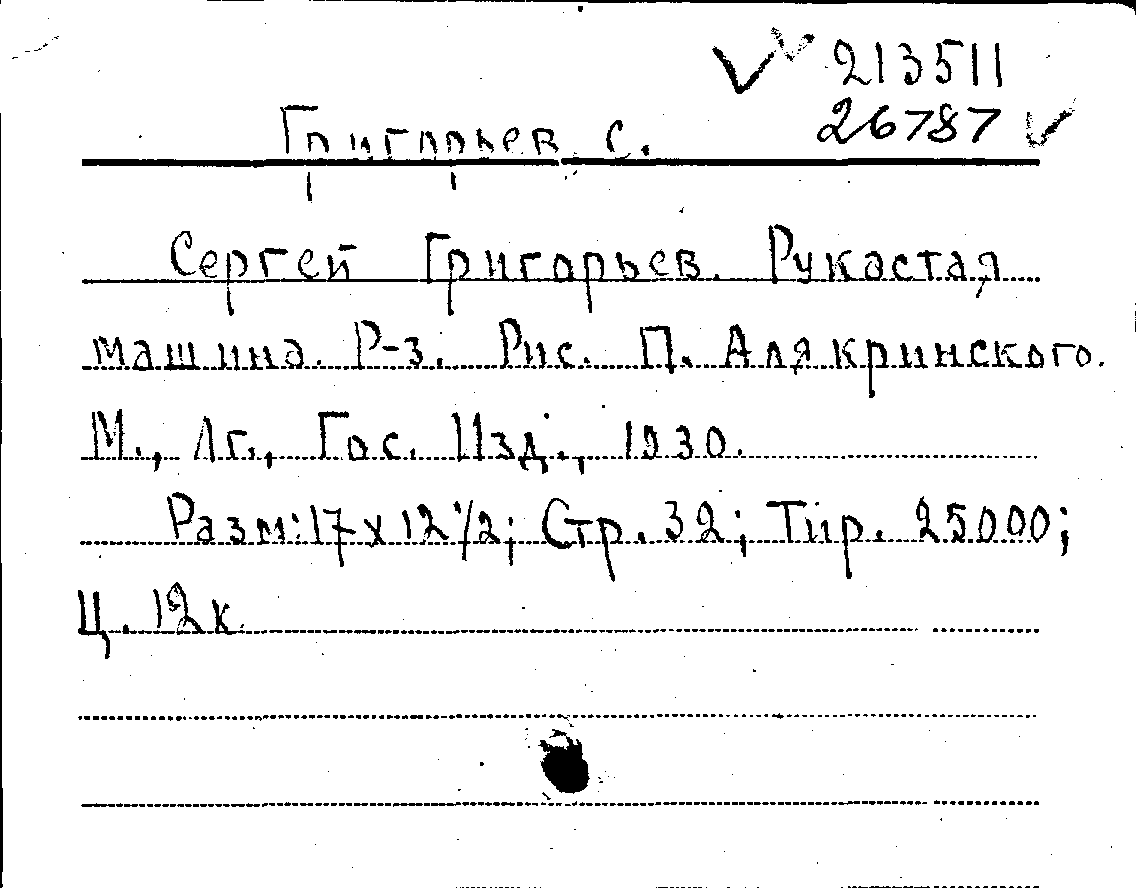 213511
26787
Григорьев, С.
Сергей Григорьев. Рукастая
машина. Р-з. Рис. П. Алякринского.
М., Лг., Гос. Изд., 1930.
Разм: 17 х 12 1/2; Стр. 32; Тир. 25000;
Ц. 12 к.